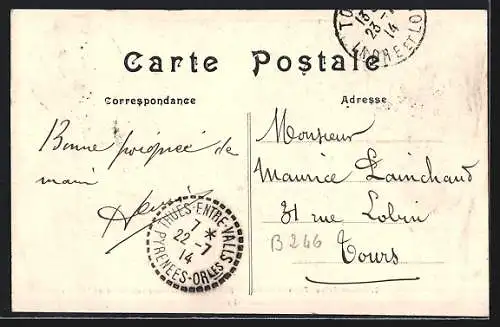 TO
13
23 -7
14
INDRE ET LO
Carte Postale
Correspondance
Adresse
Bonne poignée de
main
THUES-ENTRE-VALLS
7 *
22 -7
14
PYRENEES-ORLES
Monsieur
Maurice Lainchaud
31 rue Lobin
B 246
Tours